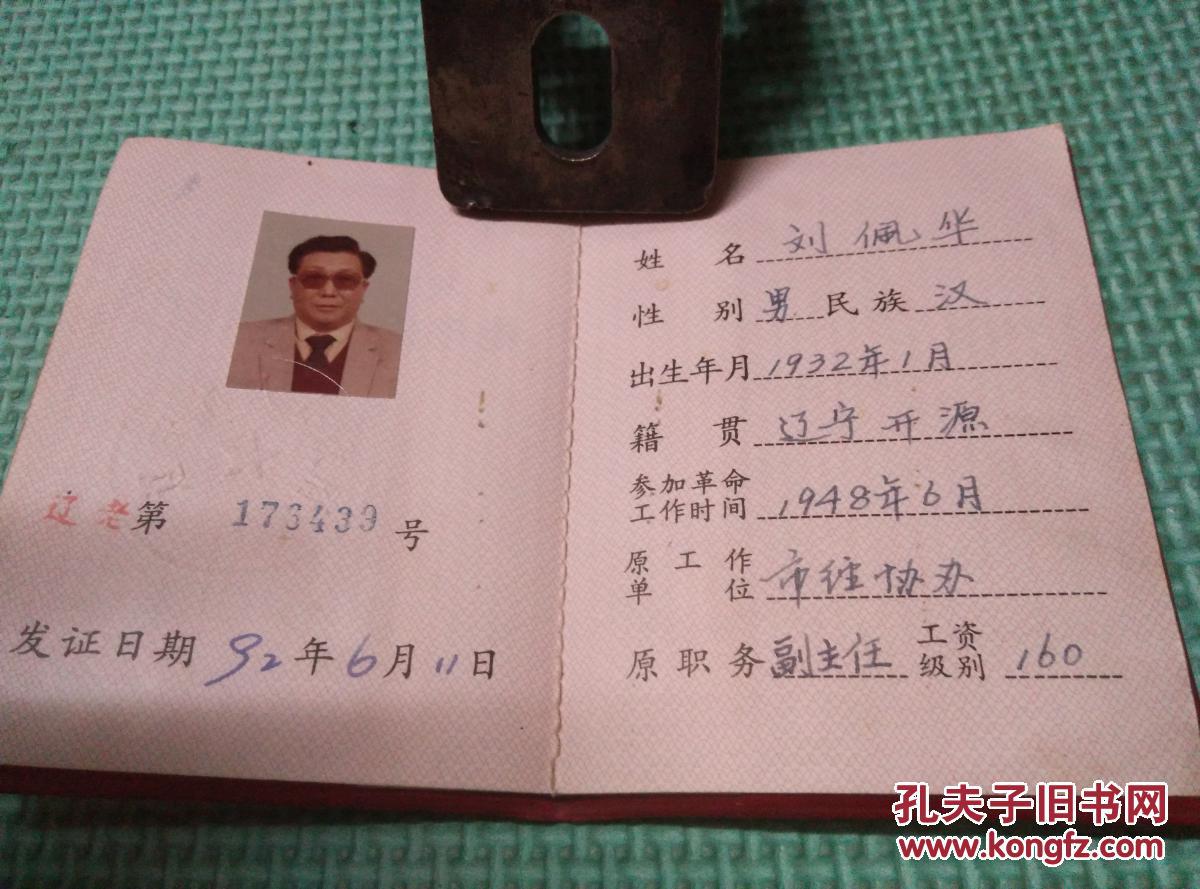 辽老第 173439 号
发证日期 92年6月11日
姓名 刘佩华
性别 男 民族 汉
出生年月 1932年1月
籍贯 辽宁开源
参加革命
工作时间 1948年6月
原工作
单位 市经协办
原职务 副主任 工资
级别 160
孔夫子旧书网
www.kongfz.com